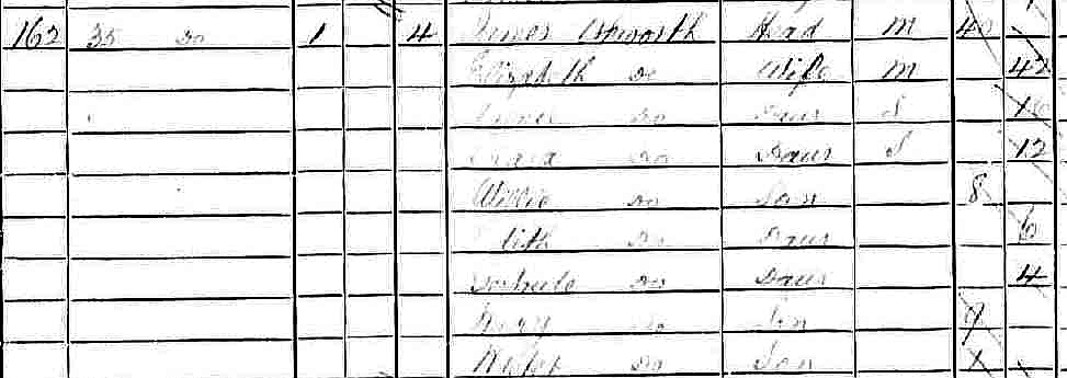 162 35 Do 1 4 James Ashworth Head M 40
Elizabeth Do Wife M 42
Do Daur S 16
Do Daur S 12
Willie Do Son 8
Edith Do Daur 6
Gertrude Do Daur 4
Harry Do Son
Do Son